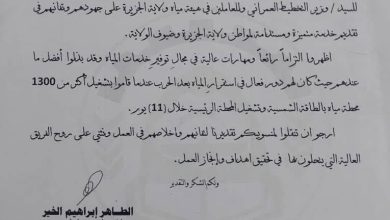 للسيد / وزير التخطيط العمراني وللعاملين في هيئة مياه ولاية الجزيرة على جهودهم وتفانيهم في
تقديم خدمة متميزة ومستدامة لمواطن ولاية الجزيرة وضيوف الولاية.
اظهروا التزاماً رائعاً ومهارات عالية في مجال توفير خدمات المياه وقد بذلوا أفضل ما
عندهم حيث كان لهم دور فعال في استقرار المياه بعد الحرب عندما قاموا بتشغيل أكثر من 1300
محطة مياه بالطاقة الشمسية وتشغيل المحطة الرئيسية خلال (11) يوم.
ارجو ان تنقلوا لمنسوبيكم تقديرنا لتفانيهم واخلاصهم في العمل ونثني على روح الفريق
العالية التي يتحلون بها في تحقيق اهداف وإنجاز العمل.
ولكم الشكر والتقدير
الطاهر إبراهيم الخير